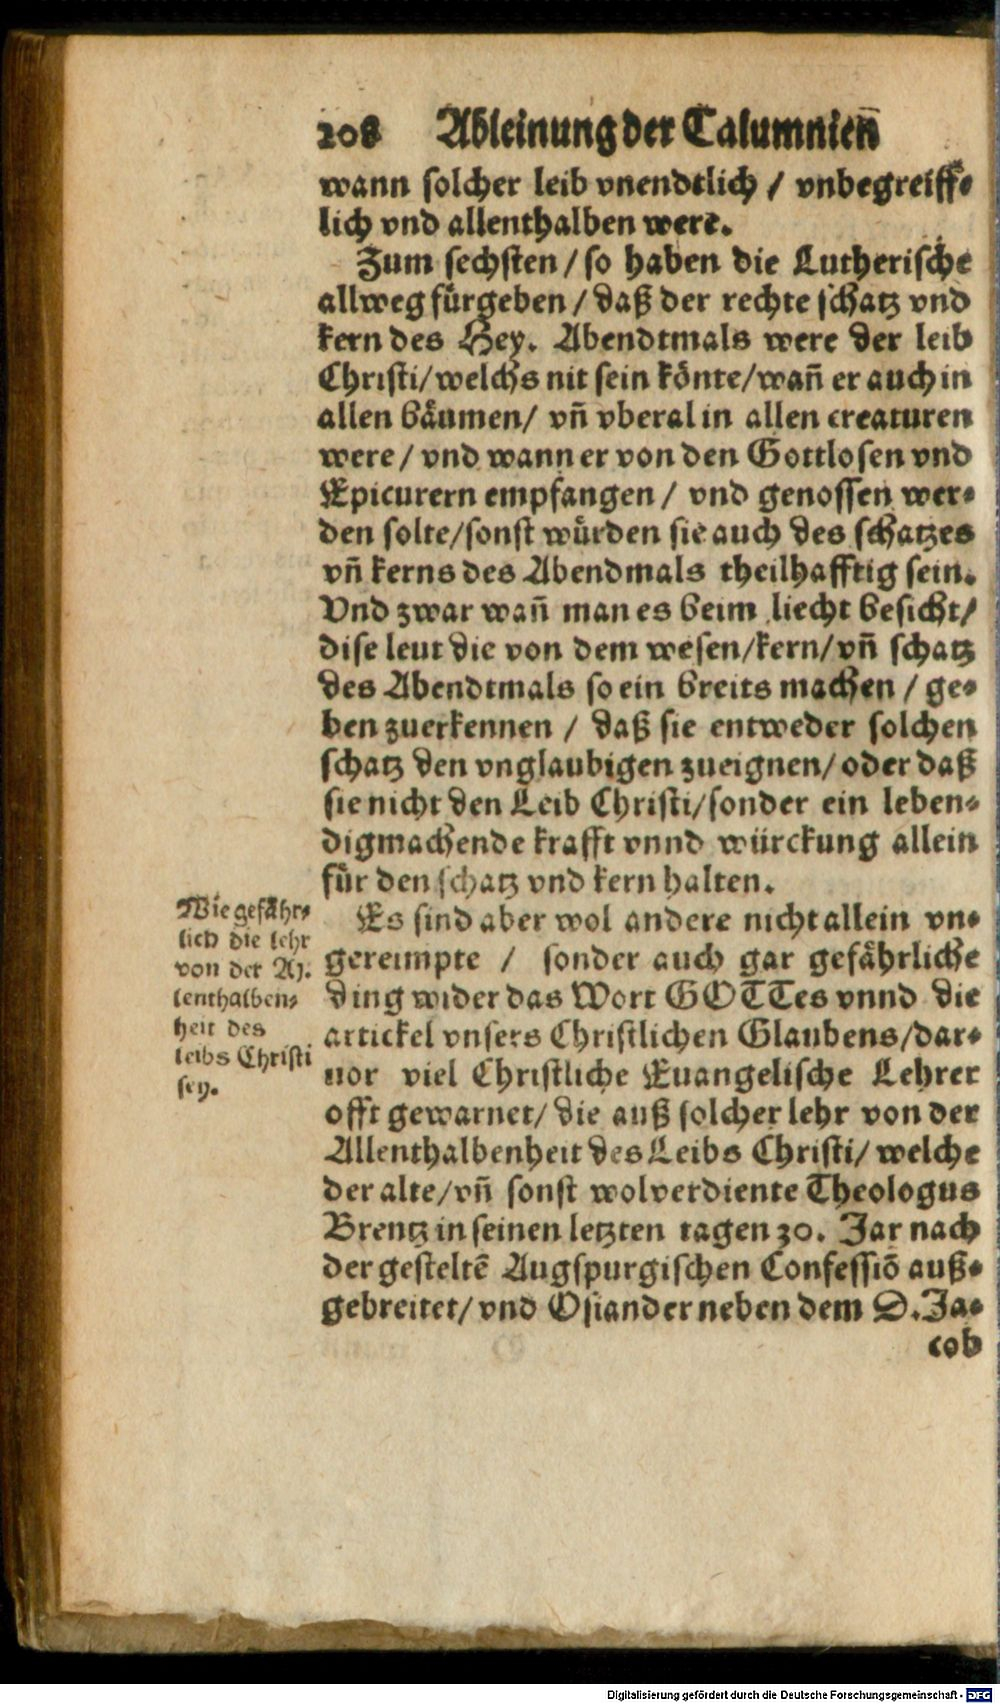 208 Ableinung der Calumnieñ
wann solcher leib vnendtlich / vnbegreiff⸗
lich vnd allenthalben were.
Zum sechsten / so haben die Lutherische
allweg fürgeben / daß der rechte schatz vnd
kern des Hey. Abendtmals were der leib
Christi / welchs nit sein könte / wañ er auch in
allen bäumen / vñ vberal in allen creaturen
were / vnd wann er von den Gottlosen vnd
Epicurern empfangen / vnd genossen wer⸗
den solte / sonst würden sie auch des schatzes
vñ kerns des Abendmals theilhafftig sein.
Vnd zwar wañ man es beim liecht besicht /
dise leut die von dem wesen / kern / vñ schatz
des Abendtmals so ein breits machen / ge⸗
ben zuerkennen / daß sie entweder solchen
schatz den vnglaubigen zueignen / oder daß
sie nicht den Leib Christi / sonder ein leben⸗
digmachende krafft vnnd würckung allein
für den schatz vnd kern halten.
Es sind aber wol andere nicht allein vn⸗
gereimpte / sonder auch gar gefährliche
ding wider das Wort GOTTes vnnd die
artickel vnsers Christlichen Glaubens / dar⸗
uor viel Christliche Euangelische Lehrer
offt gewarnet / die auß solcher lehr von der
Allenthalbenheit des Leibs Christi / welche
der alte / vñ sonst wolverdiente Theologus
Brentz in seinen letzten tagen 30. Jar nach
der gesteltẽ Augspurgischen Confessiõ auß⸗
gebreitet / vnd Osiander neben dem D. Ja⸗
cob
Wie gefähr⸗
lich die lehr
von der Al⸗
lenthalben⸗
heit des
leibs Christi
sey.
Digitalisierung gefördert durch die Deutsche Forschungsgemeinschaft - DFG